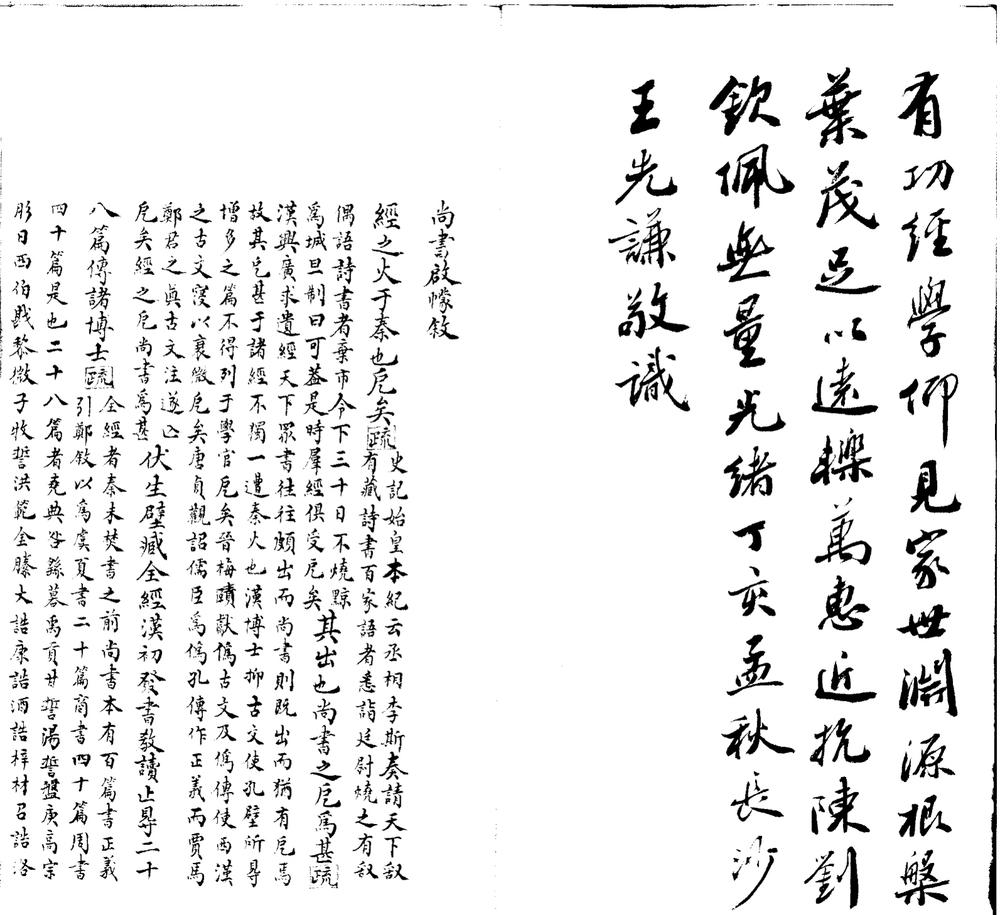 有功經學仰見家世淵源根槃
葉茂足以遠轢萬惠近抗陳劉
欽佩無量光緒丁亥孟秋長沙
王先謙敬識
尚書啟幪敘
經之火于秦也戹矣疏史記始皇本紀云丞相李斯奏請天下敢
有藏詩書百家語者悉詣廷尉燒之有敢
偶語詩書者棄市令下三十日不燒黥
爲城旦制曰可葢是時羣經俱受戹矣其出也尚書之戹爲甚疏
漢興廣求遺經天下眾書往往頗出而尚書則既出而猶有戹焉
故其戹甚于諸經不獨一遭秦火也漢博士抑古文使孔壁所㝵
增多之篇不得列于學官戹矣晉梅賾獻僞古文及僞傳使西漢
之古文寖以衰微戹矣唐貞觀詔儒臣爲僞孔傳作正義而賈馬
鄭君之眞古文注遂亡
戹矣經之戹尚書爲甚伏生壁臧全經漢初發書教讀止㝵二十
八篇傳諸博士疏全經者秦未焚書之前尚書本有百篇書正義
引鄭敘以爲虞夏書二十篇商書四十篇周書
四十篇是也二十八篇者堯典咎繇謩禹貢甘誓湯誓盤庚高宗
肜日西伯戡黎微子牧誓洪範金縢大誥康誥酒誥梓材召誥洛